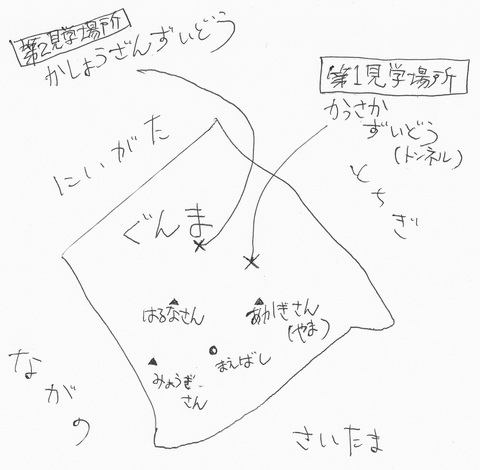 第2見学場所
かしょうざんずいどう
第1見学場所
かっさか
ずいどう
(トンネル)
にいがた
とちぎ
ぐんま
はるなさん
あかぎさん
(やま)
まえばし
みょうぎ
さん
ながの
さいたま